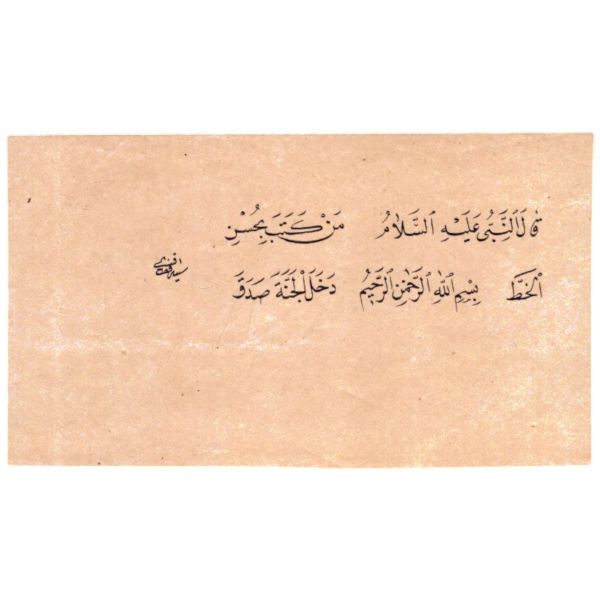 قَالَ النَّبِيُّ عَلَيْهِ السَّلَامُ مَنْ كَتَبَ بِحُسْنِ
الْخَطِّ بِسْمِ اللهِ الرَّحْمٰنِ الرَّحِيمِ دَخَلَ الْجَنَّةَ صَدَقَ